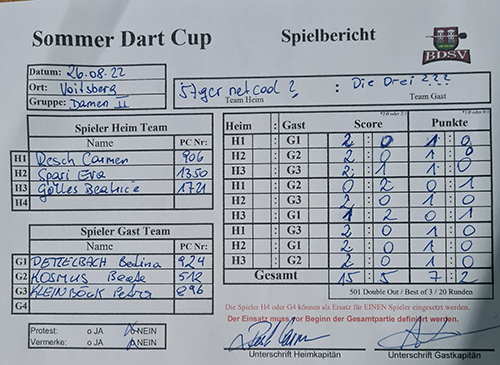 Sommer Dart Cup Spielbericht
BDSV
Datum: 26.08.22
Ort: Voitsberg
Gruppe: Damen II
Team Heim : Die Drei ??? Team Gast
Spieler Heim Team
Name PC Nr:
H1 Resch Carmen 906
H2 Spari Eva 1350
H3 Gölles Beatrice 1721
H4
Spieler Gast Team
Name PC Nr:
G1 DETTELBACH Bettina 924
G2 KOSMUS Beate 512
G3 KLEINBÖCK Petra 896
G4
Protest: o JA o NEIN
Vermerke: o JA o NEIN
Heim : Gast Score Punkte
H1 : G1 2 : 0 1 : 0
H2 : G2 2 : 0 1 : 0
H3 : G3 2 : 1 1 : 0
H2 : G1 0 : 2 0 : 1
H1 : G3 2 : 0 1 : 0
H3 : G2 2 : 0 1 : 0
H2 : G3 1 : 2 0 : 1
H1 : G2 2 : 0 1 : 0
H3 : G1 2 : 0 1 : 0
Gesamt 15 : 5 7 : 2
501 Double Out / Best of 3 / 20 Runden
Die Spieler H4 oder G4 können als Ersatz für EINEN Spieler eingesetzt werden.
Der Einsatz muss vor Beginn der Gesamtpartie definiert werden.
Unterschrift Heimkapitän Unterschrift Gastkapitän